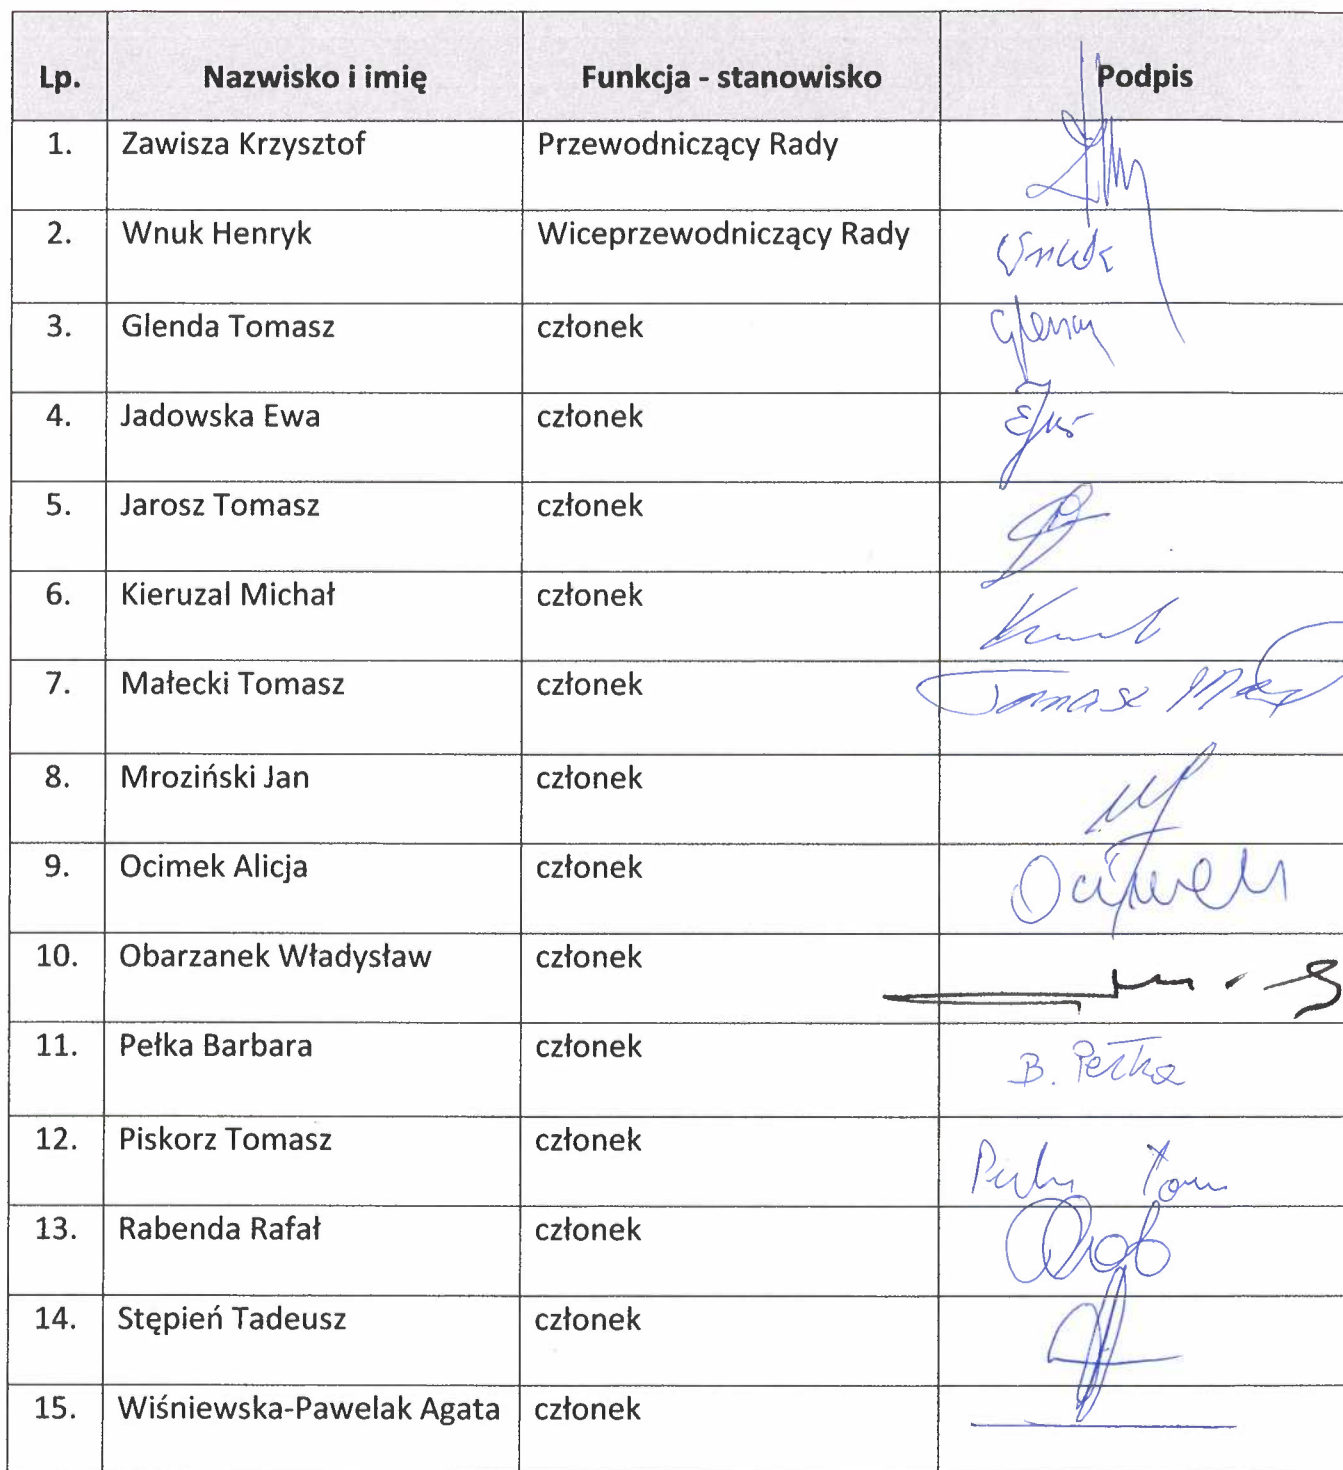 Lp. Nazwisko i imię Funkcja - stanowisko Podpis
1. Zawisza Krzysztof Przewodniczący Rady
2. Wnuk Henryk Wiceprzewodniczący Rady Wnuk
3. Glenda Tomasz członek
4. Jadowska Ewa członek
5. Jarosz Tomasz członek
6. Kieruzal Michał członek
7. Małecki Tomasz członek Tomasz
8. Mroziński Jan członek
9. Ocimek Alicja członek Ocimek
10. Obarzanek Władysław członek
11. Pełka Barbara członek B. Pełka
12. Piskorz Tomasz członek
13. Rabenda Rafał członek
14. Stępień Tadeusz członek
15. Wiśniewska-Pawelak Agata członek